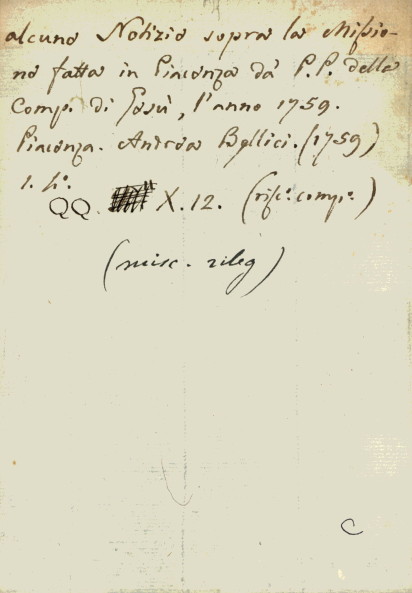 alcune Notizie sopra la Missio-
ne fatta in Piacenza da' P.P. della
Comp. di Gesù, l'anno 1759.
Piacenza. Andrea Bellici. (1759)
1. 4°.
QQ. X. 12. (rifᵗ. compᵗ.)
(misc. rileg)
C